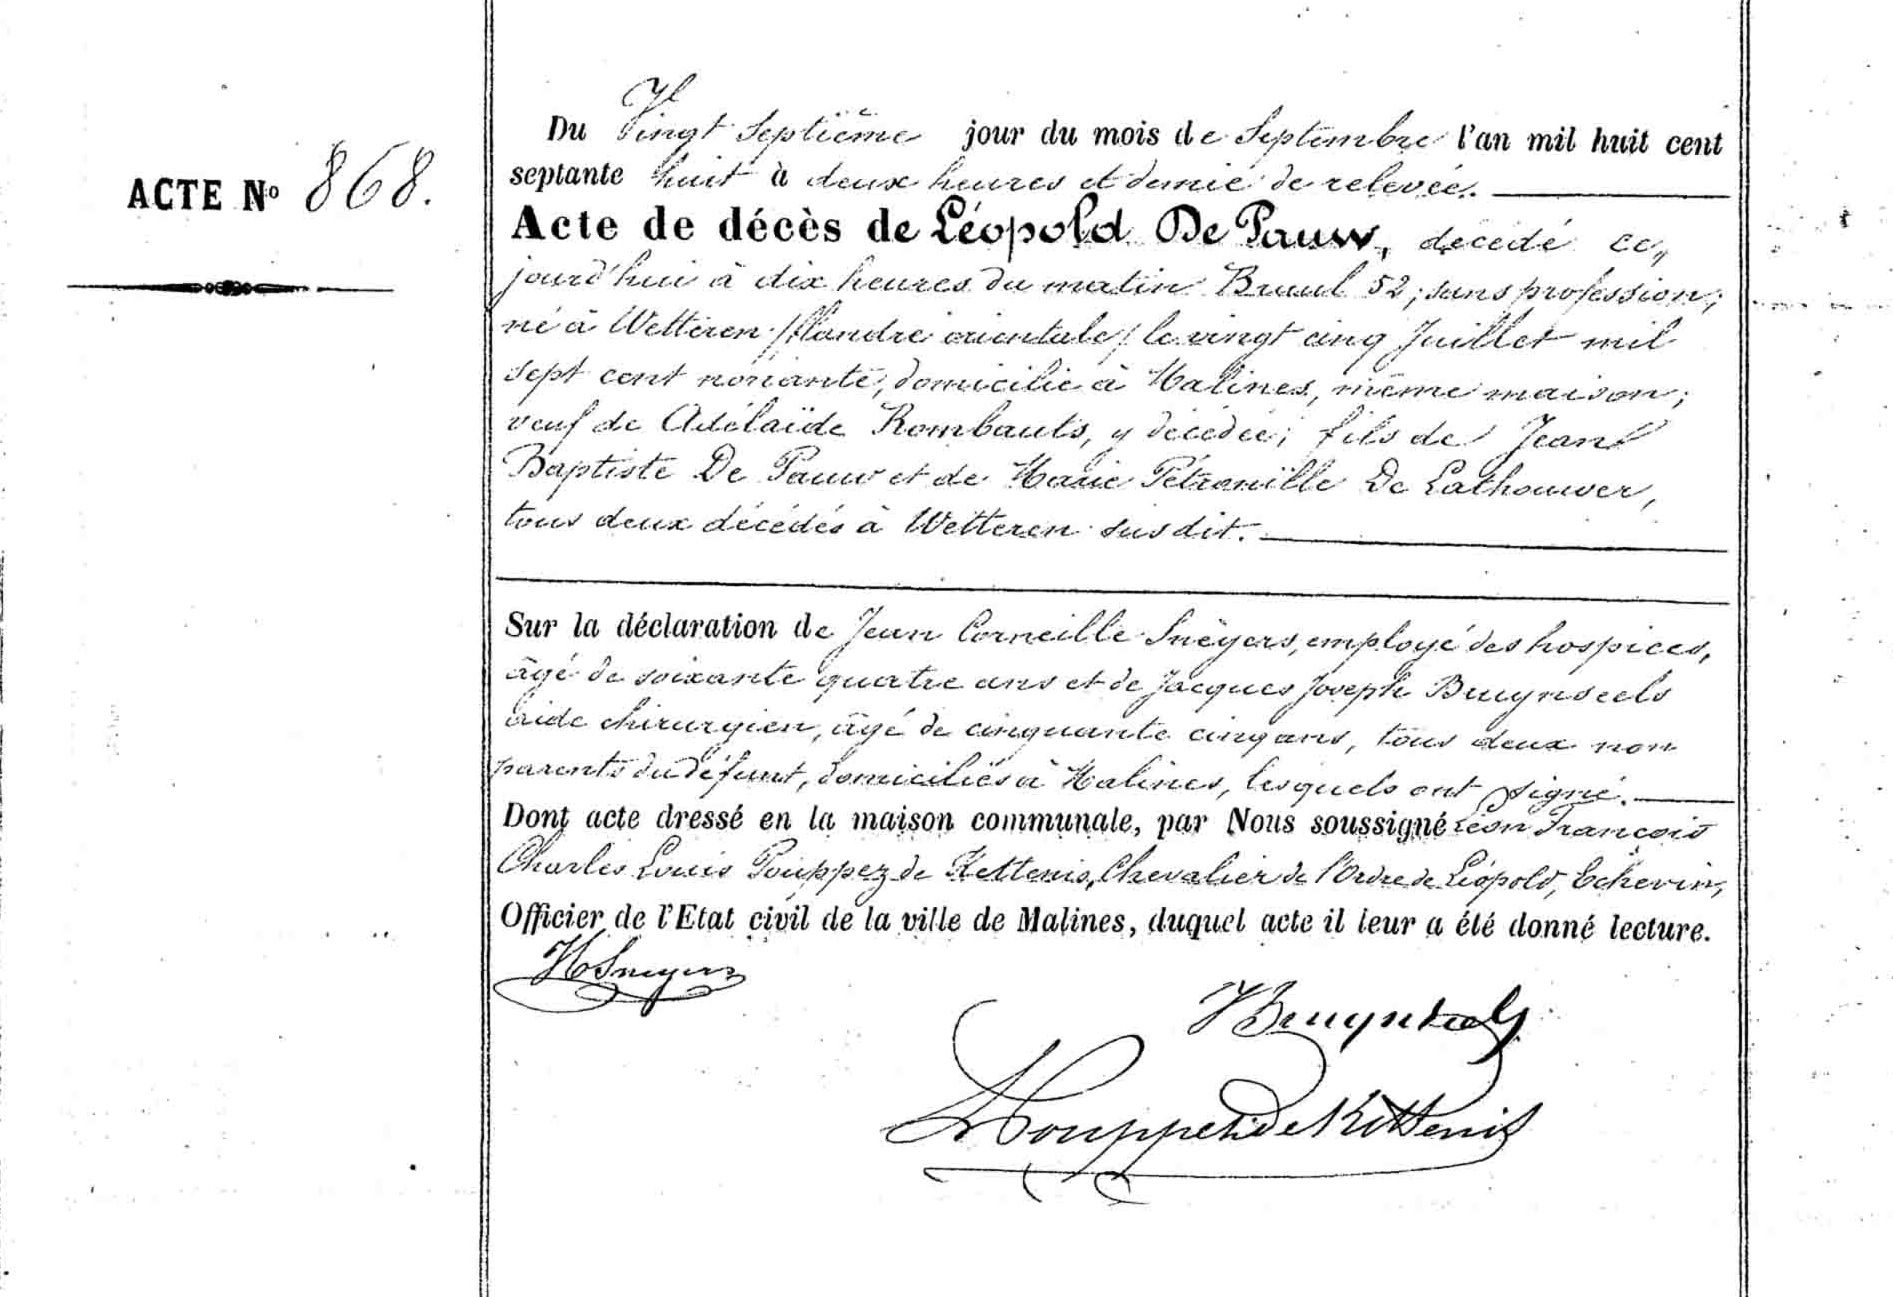 ACTE No 868.
Du Vingt Septième jour du mois de Septembre l'an mil huit cent
septante huit à deux heures et demie de relevée.
Acte de décès de Léopold De Pauw, décédé ce,,
jourd'hui à dix heures du matin Bruul 52; sans profession;
né à Wetteren /flandre orientale/ le vingt cinq Juillet mil
sept cent nonante, domicilié à Malines, même maison;
veuf de Adélaïde Rombauts, y décédée; fils de Jean
Baptiste De Pauw et de Marie Pétronille De Lathouwer,
tous deux décédés à Wetteren susdit.
Sur la déclaration de Jean Corneille Sneyers, employé des hospices,
âgé de soixante quatre ans et de Jacques Joseph Bruynseels
aide chirurgien, âgé de cinquante cinq ans, tous deux non
parents du défunt, domiciliés à Malines, lesquels ont signé.
Dont acte dressé en la maison communale, par Nous soussigné Léon François
Charles Louis Pouppez de Kettenis, Chevalier de l'Ordre de Léopold, Echevin,
Officier de l'Etat civil de la ville de Malines, duquel acte il leur a été donné lecture.
Sneyers
J Bruynseels
L Pouppez de Kettenis